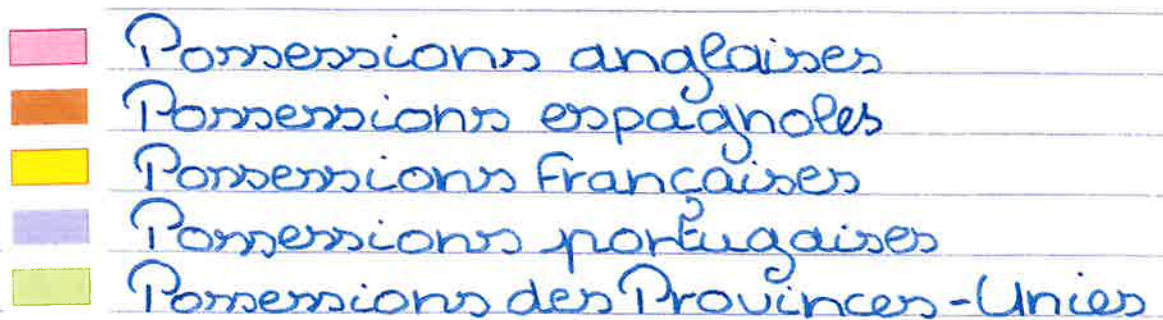 Possessions anglaises
Possessions espagnoles
Possessions Françaises
Possessions portugaises
Possessions des Provinces-Unies